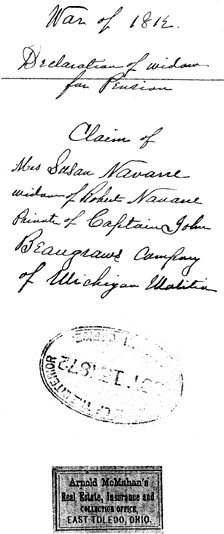 War of 1812.
Declaration of widow
for Pension
Claim of
Mrs Susan Navarre
widow of Robert Navarre
Private of Captain John
Beaugraws Company
of Michigan Militia
INTERIOR
OCT 12 1872
Arnold McMahan's
Real Estate, Insurance and
COLLECTION OFFICE,
EAST TOLEDO, OHIO.